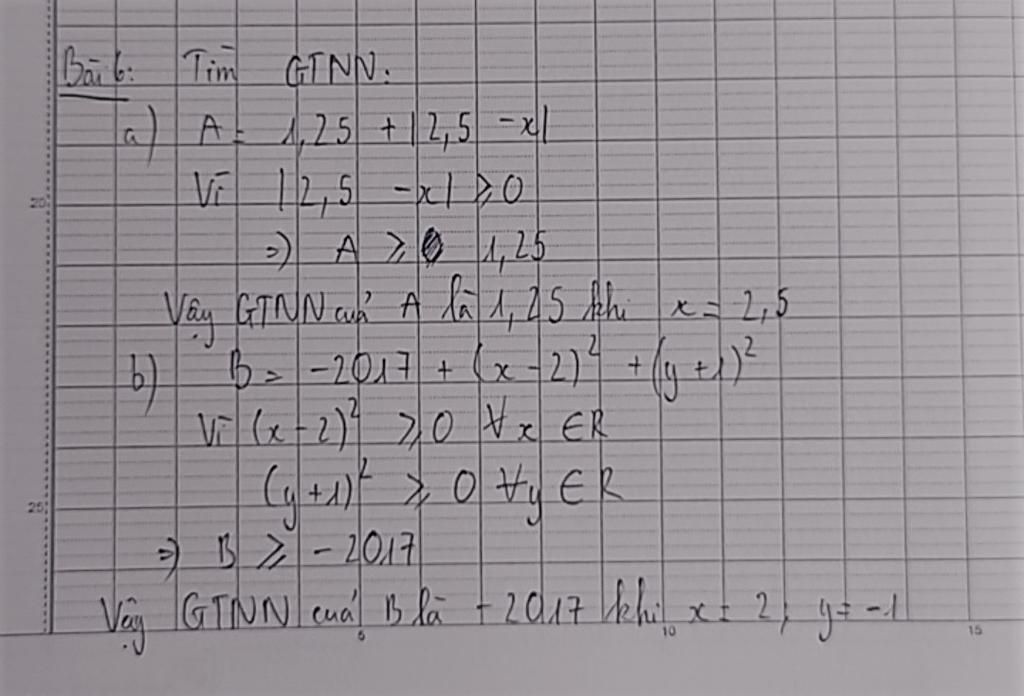 Bài 6: Tìm GTNN:
a) A = 1,25 + |2,5 - x|
Vì |2,5 - x| ⩾ 0
=> A ⩾ 1,25
Vậy GTNN của A là 1,25 khi x = 2,5
b) B = -2017 + (x - 2)² + (y + 1)²
Vì (x - 2)² ⩾ 0 ∀x ∈ R
(y + 1)² ⩾ 0 ∀y ∈ R
=> B ⩾ -2017
Vậy GTNN của B là -2017 khi x = 2; y = -1
20
25
5 10 15